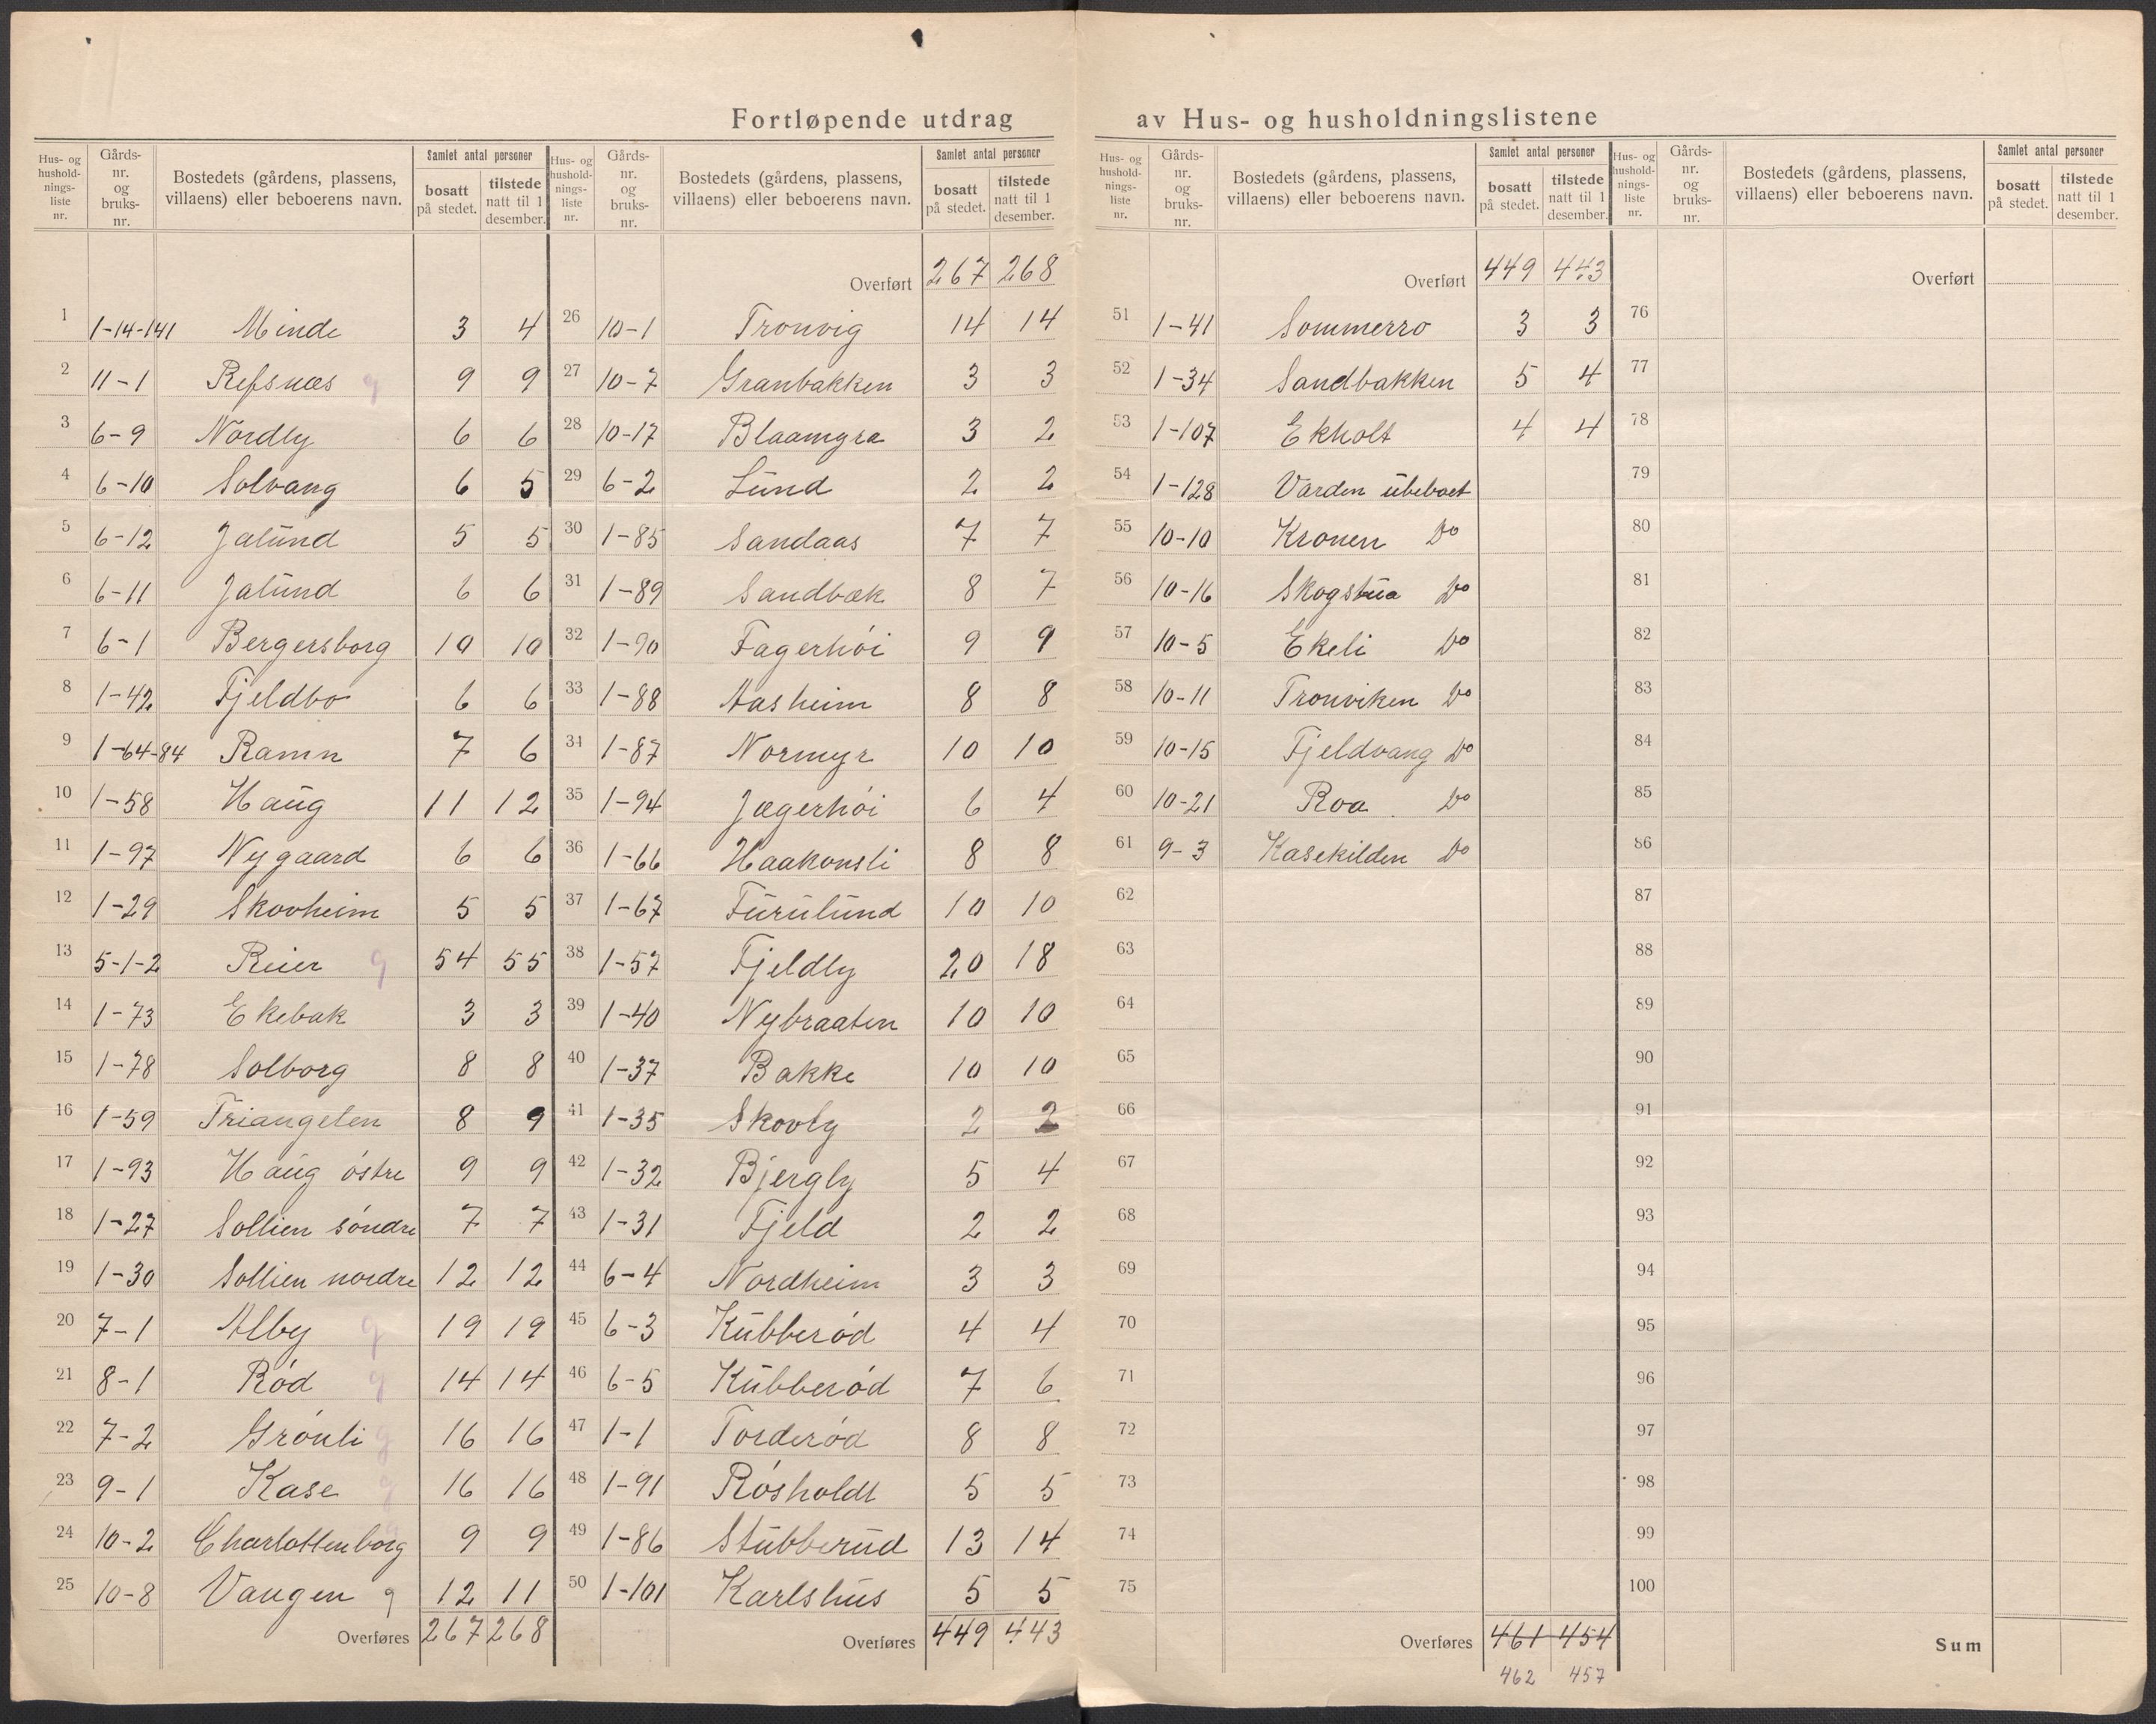 Fortløpende utdrag av Hus- og husholdningslistene
Hus- og hushold- nings- liste nr. Gårds- nr. og bruks- nr. Bostedets (gårdens, plassens, villaens) eller beboerens navn. Samlet antal personer bosatt på stedet. tilstede natt til 1 desember.
1 1-14-141 Minde 3 4
2 11-1 Refsnæs g 9 9
3 6-9 Nordby 6 6
4 6-10 Solvang 6 5
5 6-12 Jalund 5 5
6 6-11 Jalund 6 6
7 6-1 Bergersborg 10 10
8 1-42 Fjeldbo 6 6
9 1-64-84 Ramn 7 6
10 1-58 Haug 11 12
11 1-97 Nygaard 6 6
12 1-29 Skovheim 5 5
13 5-1-2 Reier g 54 55
14 1-73 Ekebak 3 3
15 1-78 Solborg 8 8
16 1-59 Triangelen 8 9
17 1-93 Haug østre 9 9
18 1-27 Sollien søndre 7 7
19 1-30 Sollien nordre 12 12
20 7-1 Alby g 19 19
21 8-1 Rød g 14 14
22 7-2 Grønli g 16 16
23 9-1 Kase g 16 16
24 10-2 Charlottenborg g 9 9
25 10-8 Vangen g 12 11
Overføres 267 268
Hus- og hushold- nings- liste nr. Gårds- nr. og bruks- nr. Bostedets (gårdens, plassens, villaens) eller beboerens navn. Samlet antal personer bosatt på stedet. tilstede natt til 1 desember.
Overført 267 268
26 10-1 Tronvig 14 14
27 10-7 Granbakken 3 3
28 10-17 Blaamyra 3 2
29 6-2 Lund 2 2
30 1-85 Sandaas 7 7
31 1-89 Sandbæk 8 7
32 1-90 Fagerhøi 9 9
33 1-88 Aasheim 8 8
34 1-87 Normyr 10 10
35 1-94 Jægerhøi 6 4
36 1-66 Haakonsli 8 8
37 1-67 Furulund 10 10
38 1-57 Fjeldly 20 18
39 1-40 Nybraaten 10 10
40 1-37 Bakke 10 10
41 1-35 Skovly 2 2
42 1-32 Bjergly 5 4
43 1-31 Fjeld 2 2
44 6-4 Nordheim 3 3
45 6-3 Kubberød 4 4
46 6-5 Kubberød 7 6
47 1-1 Torderød 8 8
48 1-91 Røsholdt 5 5
49 1-86 Stubberud 13 14
50 1-101 Karlshus 5 5
Overføres 449 443
Hus- og hushold- nings- liste nr. Gårds- nr. og bruks- nr. Bostedets (gårdens, plassens, villaens) eller beboerens navn. Samlet antal personer bosatt på stedet. tilstede natt til 1 desember.
Overført 449 443
51 1-41 Sommerro 3 3
52 1-34 Sandbakken 5 4
53 1-107 Ekholt 4 4
54 1-128 Varden ubeboet
55 10-10 Kronen Do
56 10-16 Skogstua Do
57 10-5 Ekeli Do
58 10-11 Tronviken Do
59 10-15 Fjeldvang Do
60 10-21 Roa Do
61 9-3 Kasekilden Do
62
63
64
65
66
67
68
69
70
71
72
73
74
75
Overføres 461 454
462 457
Hus- og hushold- nings- liste nr. Gårds- nr. og bruks- nr. Bostedets (gårdens, plassens, villaens) eller beboerens navn. Samlet antal personer bosatt på stedet. tilstede natt til 1 desember.
Overført
76
77
78
79
80
81
82
83
84
85
86
87
88
89
90
91
92
93
94
95
96
97
98
99
100
Sum